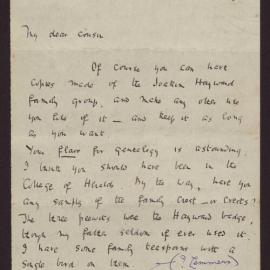 My dear Cousin
Of course you can have
copies made of the Joachim Hayward
family group, and make any other use
you like of it — and keep it as long
as you want.
Your flair for genealogy is astounding.
I think you should have been in the
College of Heralds. By the way, have you
any sample of the family crest — or crests?
The three peewits were the Hayward badge,
though my father seldom if ever used it.
I have some family teaspoons with a
single bird on them.